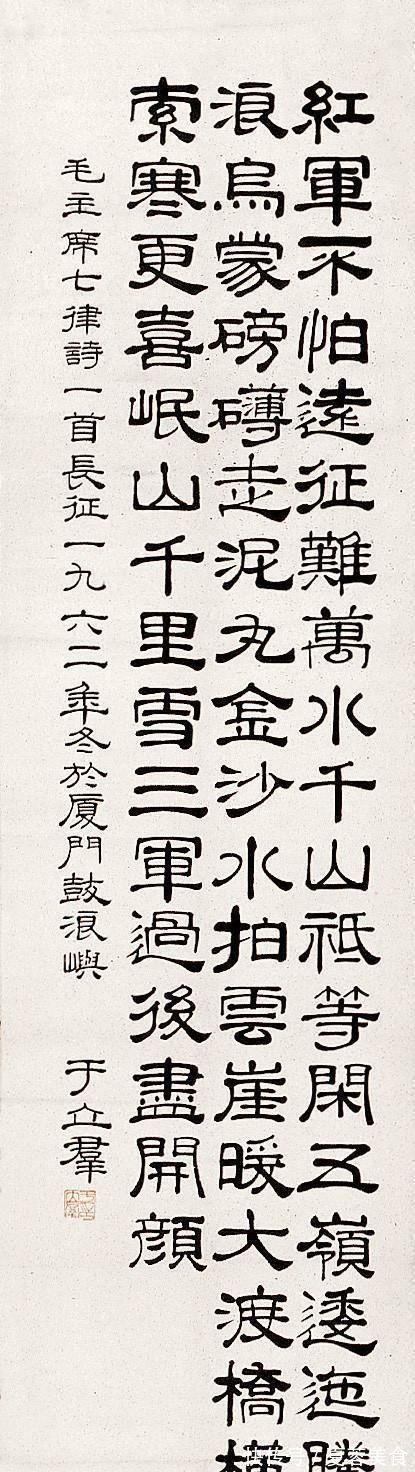 紅軍不怕遠征難萬水千山祗等閑五嶺逶迤騰
浪烏蒙磅礴走泥丸金沙水拍雲崖暖大渡橋橫
索寒更喜岷山千里雪三軍過後盡開顔
毛主席七律詩一首長征一九六二年冬於厦門鼓浪嶼 于立羣
美食